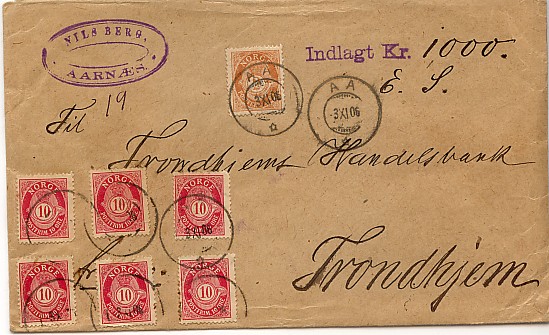 NILS BERG.
AARNÆS.
Indlagt Kr. 1000.
E. S.
19
AA
3 XI 06
AA
-3 XI 06
Til
Trondhjems Handelsbank
Trondhjem
NORGE
NORGE
NORGE
10
10
10
POSTFRIM 10 ØRE
POSTFRIM 10 ØRE
POSTFRIM 10 ØRE
NORGE
NORGE
NORGE
10
10
10
POSTFRIM 10 ØRE
POSTFRIM 10 ØRE
POSTFRIM 10 ØRE